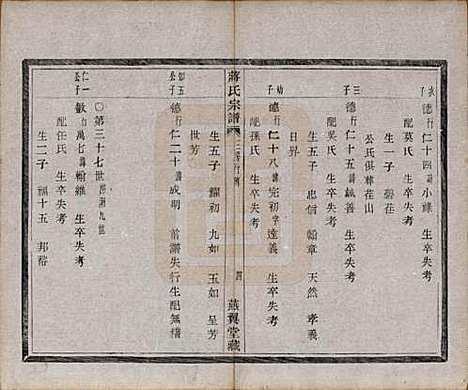 次子
德行仁十四諱小祿 生卒失考
配莫氏 生卒失考
生一子 發茌
公氏俱葬茌山
三子
德行仁十五諱誠善 生卒失考
配吳氏 生卒失考
生五子 忠信 翰章 天然 孝義
日昇
幼子
德行仁十八諱完初字達義 生卒失考
配孫氏 生卒失考
蔣氏宗譜
四
燕翼堂藏
生五子 耀初 九如 玉如 呈芳
世芳
公子
德行仁二十諱成期 前譜失行生配無稽
第三十七世
仁一公子
行萬七諱翰維 生卒失考
配任氏 生卒失考
生二子 福十五 邦裕